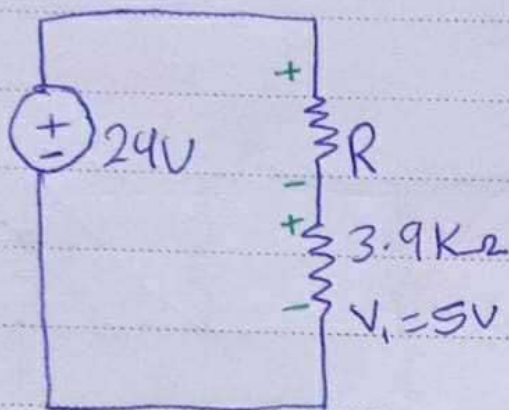 +
+
-
24V
R
-
+
3.9KΩ
-
V₁=5V